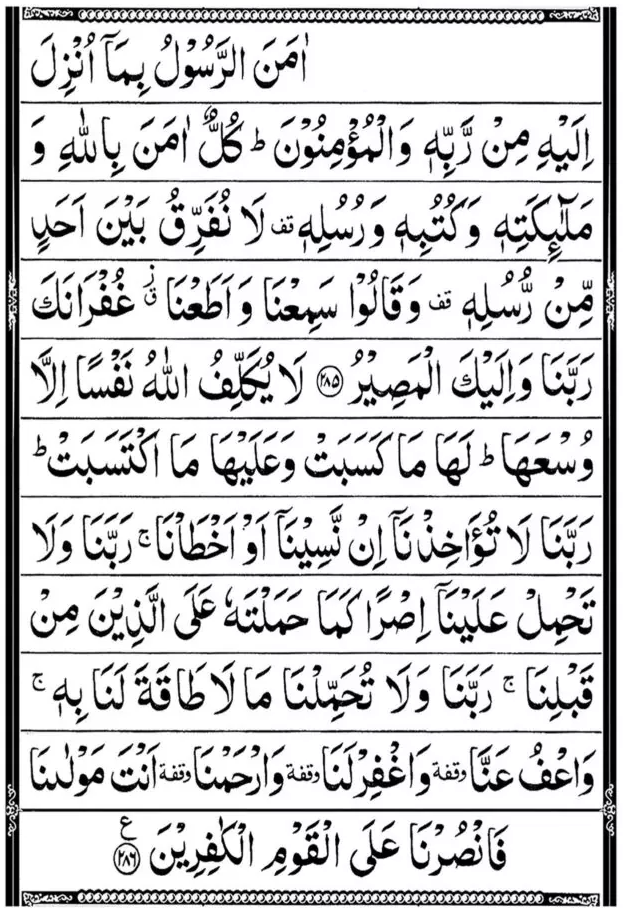 اٰمَنَ الرَّسُوْلُ بِمَاۤ اُنْزِلَ
اِلَيْهِ مِنْ رَّبِّهٖ وَالْمُؤْمِنُوْنَ ؕ كُلٌّ اٰمَنَ بِاللّٰهِ وَ
مَلٰٓئِكَتِهٖ وَكُتُبِهٖ وَرُسُلِهٖ قف لَا نُفَرِّقُ بَيْنَ اَحَدٍ
مِّنْ رُّسُلِهٖ قف وَقَالُوْا سَمِعْنَا وَاَطَعْنَا ز ق غُفْرَانَكَ
رَبَّنَا وَاِلَيْكَ الْمَصِيْرُ ﴿۲۸۵﴾ لَا يُكَلِّفُ اللّٰهُ نَفْسًا اِلَّا
وُسْعَهَا ؕ لَهَا مَا كَسَبَتْ وَعَلَيْهَا مَا اكْتَسَبَتْ ؕ
رَبَّنَا لَا تُؤَاخِذْنَاۤ اِنْ نَّسِيْنَاۤ اَوْ اَخْطَاْنَا ۚ رَبَّنَا وَلَا
تَحْمِلْ عَلَيْنَاۤ اِصْرًا كَمَا حَمَلْتَهٗ عَلَى الَّذِيْنَ مِنْ
قَبْلِنَا ۚ رَبَّنَا وَلَا تُحَمِّلْنَا مَا لَا طَاقَةَ لَنَا بِهٖ ۚ
وَاعْفُ عَنَّا وقفة وَاغْفِرْ لَنَا وقفة وَارْحَمْنَا وقفة اَنْتَ مَوْلٰىنَا
فَانْصُرْنَا عَلَى الْقَوْمِ الْكٰفِرِيْنَ ﴿۲۸۶﴾ ع